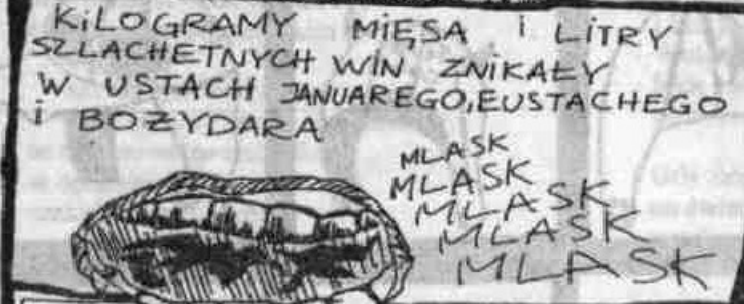 KiLOGRAMY MiĘSA i LiTRY
SZLACHETNYCH WiN ZNiKAŁY
W USTACH JANUAREGO, EUSTACHEGO
i BOŻYDARA
MLASK
MLASK
MLASK
MLASK
MLASK